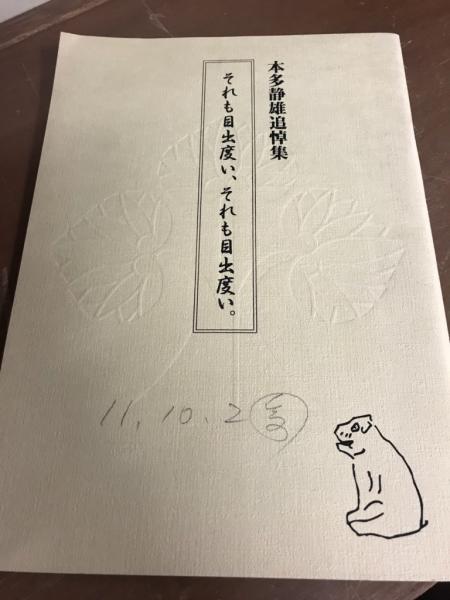 本多静雄追悼集
それも目出度い、それも目出度い。
11.10.2 受